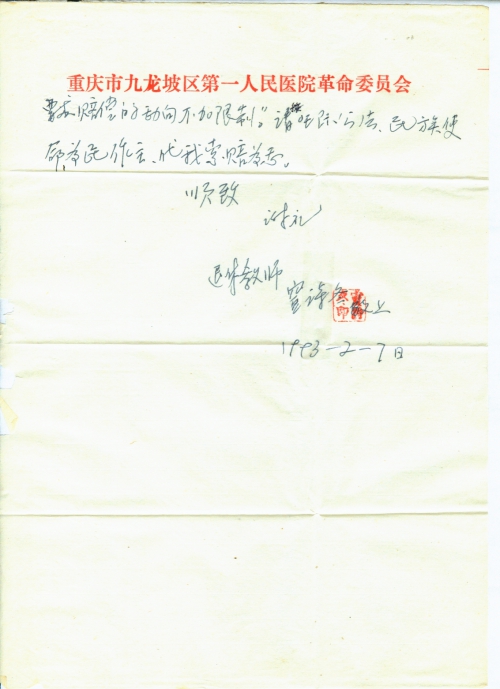 重庆市九龙坡区第一人民医院革命委员会
要求赔偿的动向不加限制”。请按国际公法、民族使
部为民作主、代我索赔为志。
顺致
谢礼
退休教师
敬上
1993-2-7日